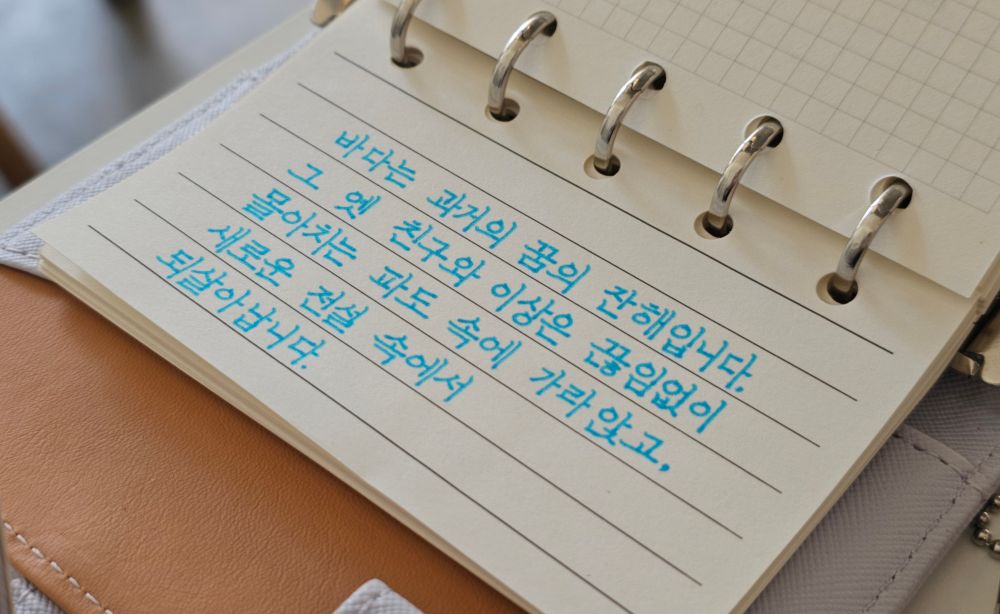 바다는 과거의 꿈의 잔해입니다.
그 옛 친구와 이상은 끊임없이
몰아치는 파도 속에 가라앉고,
새로운 전설 속에서
되살아납니다.